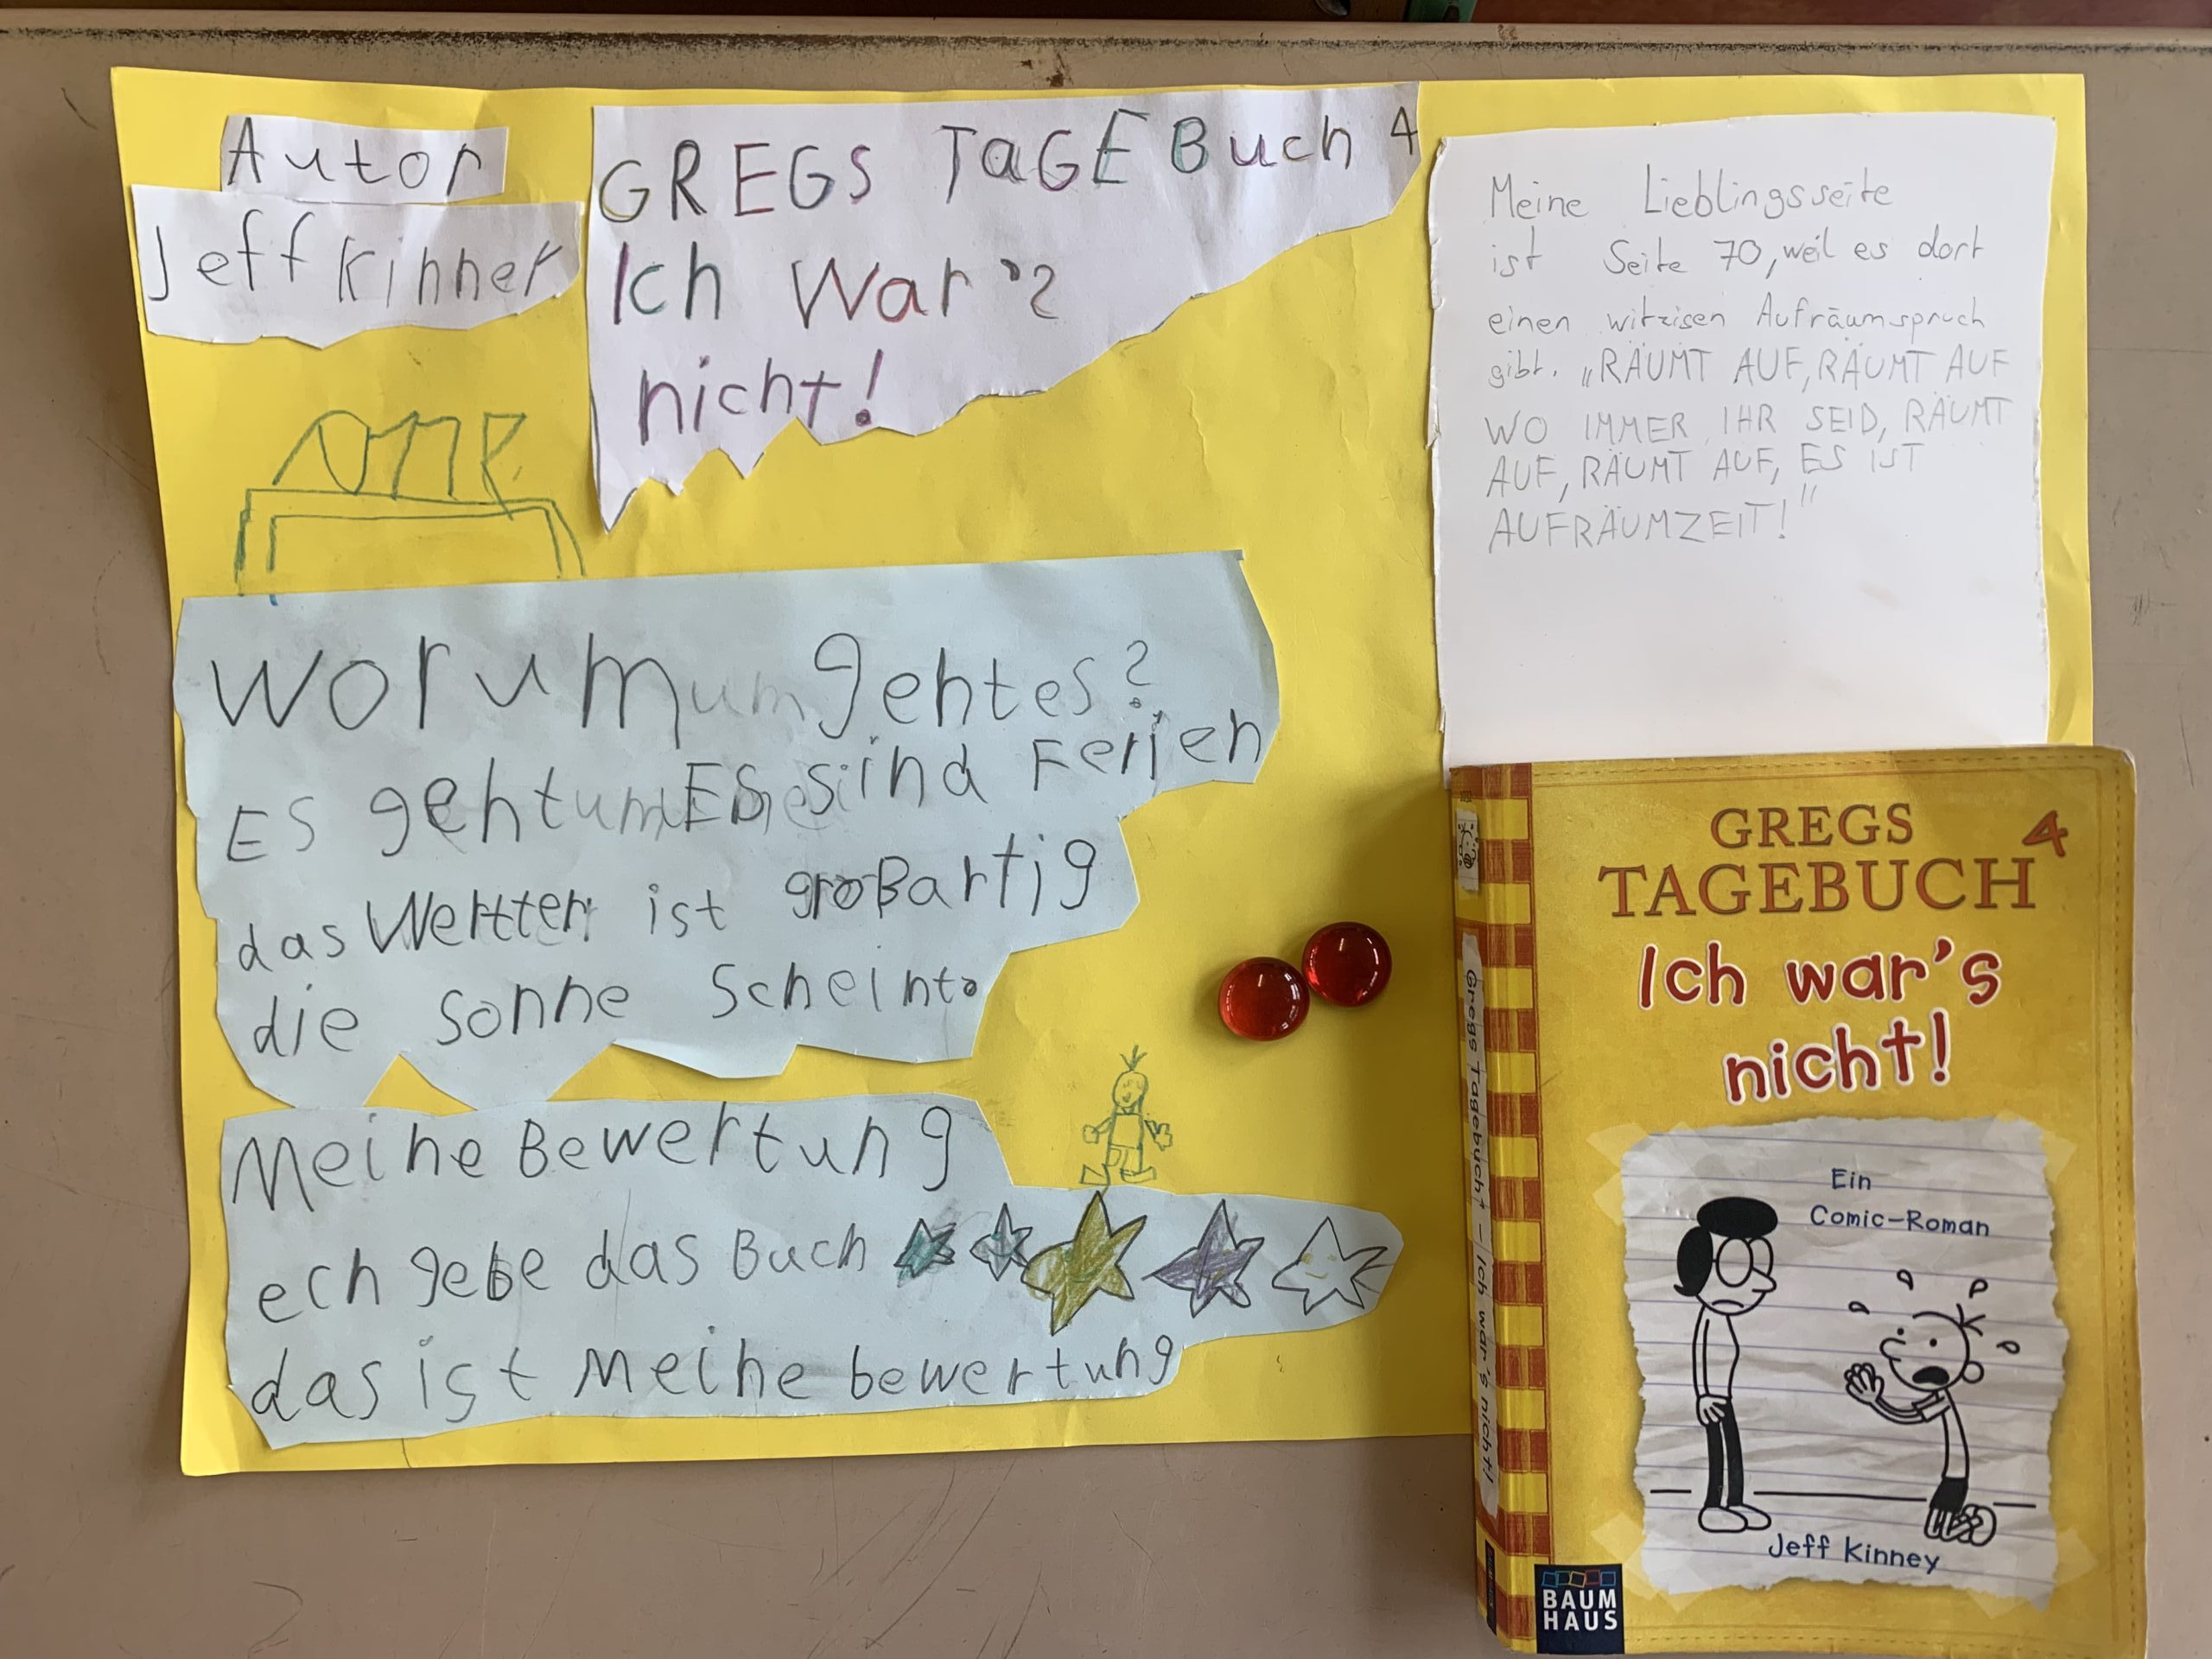 Autor
Jeff Kinner
GREGS TaGEBuch 4
Ich War's
nicht!
Meine Lieblingsseite
ist Seite 70, weil es dort
einen witzigen Aufräumspruch
gibt. „RÄUMT AUF, RÄUMT AUF
WO IMMER IHR SEID, RÄUMT
AUF, RÄUMT AUF, ES IST
AUFRÄUMZEIT!"
worum gehtes?
ES geht um ES sind Ferien
das Wetter ist großartig
die sonne Scheint.
Meine Bewertung
ech gebe das Buch
das ist Meine bewertung
GREGS 4
TAGEBUCH
Ich war's
nicht!
Ein
Comic-Roman
Jeff Kinney
BAUM
HAUS
Gregs Tagebuch 4 – Ich war's nicht!